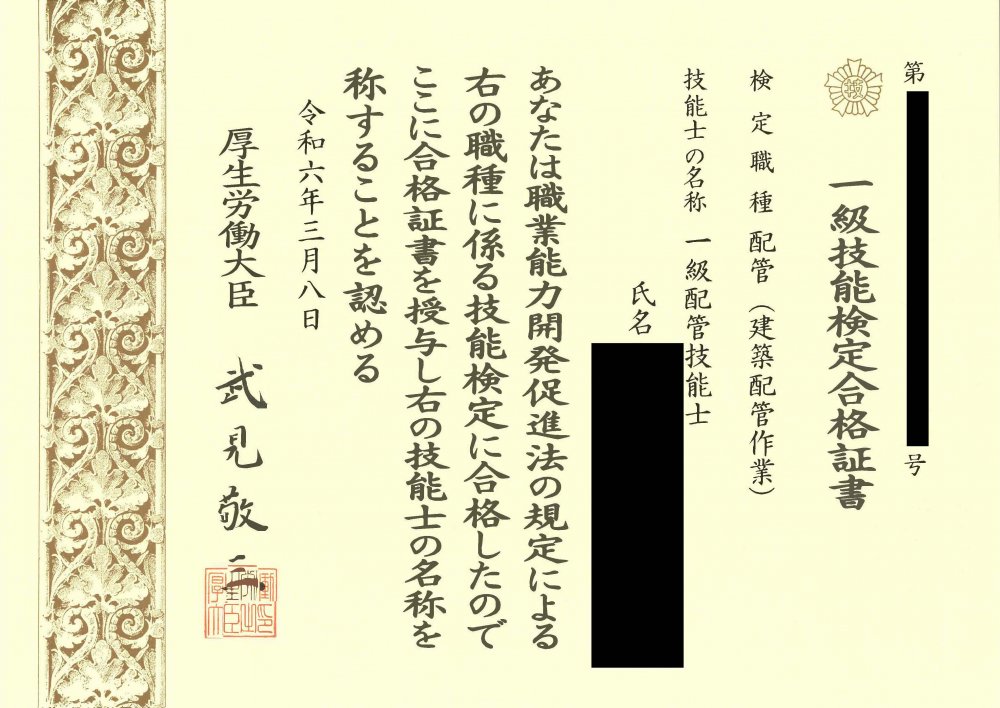 第 号
一級技能検定合格証書
検定職種 配管（建築配管作業）
技能士の名称 一級配管技能士
氏名
あなたは職業能力開発促進法の規定による
右の職種に係る技能検定に合格したので
ここに合格証書を授与し右の技能士の名称を
称することを認める
令和六年三月八日
厚生労働大臣 武見敬三